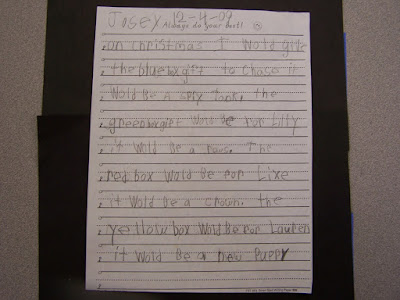 Josey 12-4-09
Always do your best!
on christmas I Wold give
the blue box gift to Chase it
Wold Be A Tonk. the
green box gift Wold Be For Lilly
it Wold Be a The
red box Wold Be For Lixe
it Wold Be a crown. the
yellow box Wold Be For Lauren
it Wold Be a new Puppy